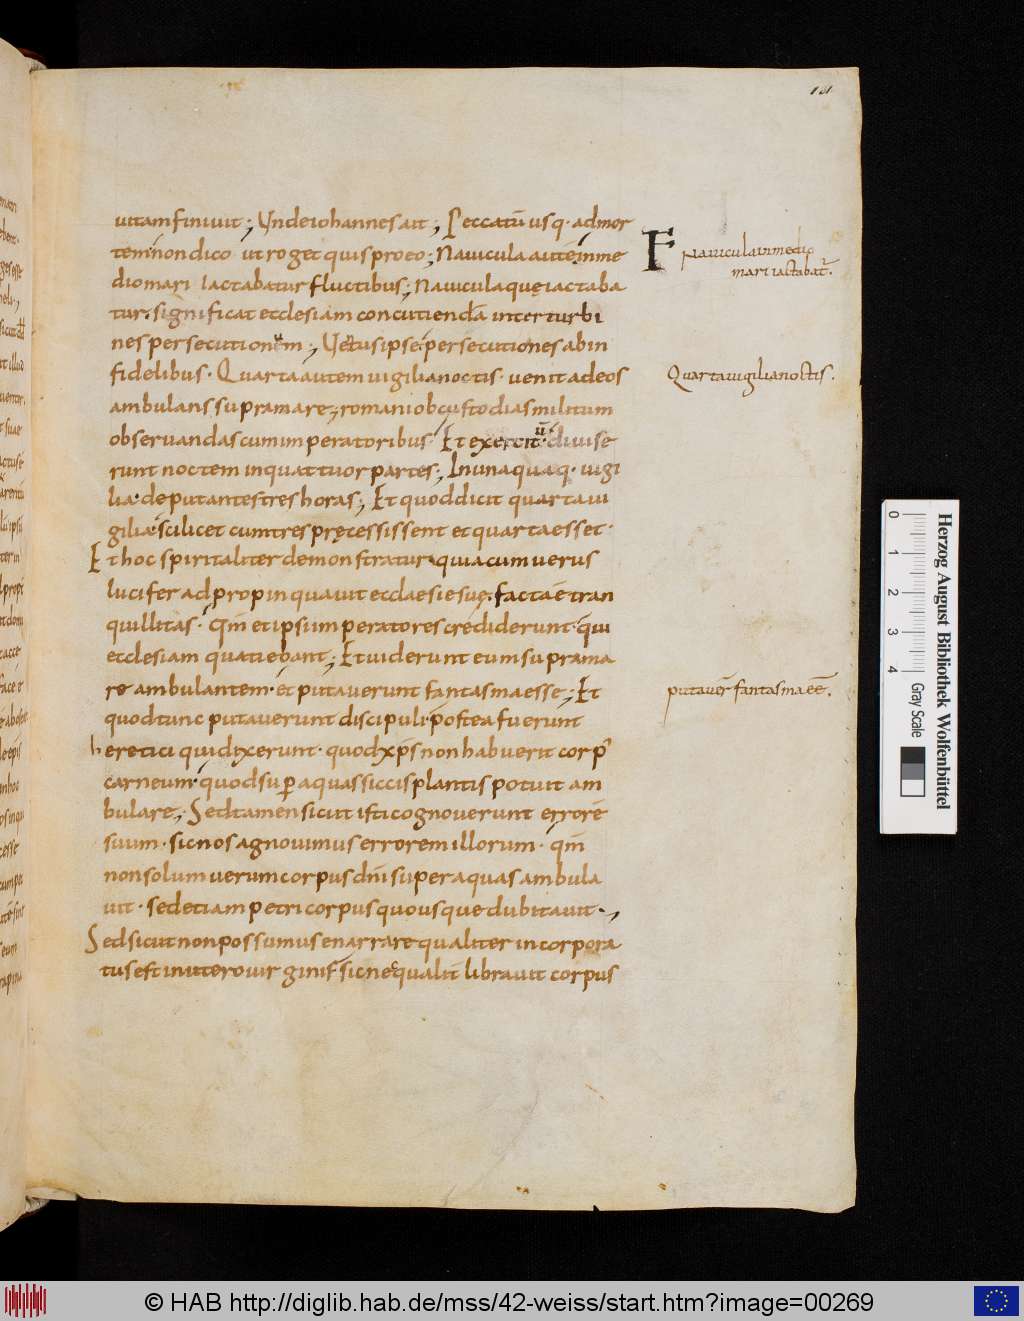 131
uitam finiuit; Unde iohannes ait; Peccatū usq· ad mor
tem non dico ut roget quis pro eo; Nauicula autē in me
dio mari iactabatur fluctibus; Nauicula quę iacta ba
tur· significat ecclesiam concutiendā inter turbi
nes persecutionem; Uel usipse persecutiones ab in
fidelibus· Quarta autem uigilia noctis· uenit ad eos
ambulans supra mare; romani ob custodias militum
obseruandas cum imperatoribus· Et exercitū diuise
runt noctem in quattuor partes; In unaquaq· uigi
lia· deputantes tres horas; Et quod dicit quarta ui
gilia· scilicet cum tres pręcessissent et quarta esset·
Et hoc spiritaliter demonstratur· quia cum uerus
lucifer ad propinquauit ecclaesie sue· facta ē tran
quillitas· qm̄ et ipsi imperatores crediderunt· qui
ecclesiam quatiebant; Et uiderunt eum supra ma
re ambulantem· et putauerunt fantasma esse; Et
quod tunc putauerunt discipuli· postea fuerunt
heretici qui dixerunt· quod xp̄s non habuerit corp'
carneum· quod sup aquas siccis plantis potuit am
bulare; Sed tamen sicut isti cognouerunt errorē
suum· sic nos agnouimus errorem illorum· qm̄
non solum uerum corpus dn̄i super aquas ambula
uit· sed etiam petri corpus quousque dubitauit·;
Sed sicut non possumus enarrare qualiter incorpora
tus est in utero uirginis· sic nec qualit librauit corpus
F Nauicula in medio
mari iactabat'.
Quarta uigilia noctis.
putauer̄ fantasma eē.
Herzog August Bibliothek Wolfenbüttel
0 1 2 3 4
Gray Scale
© HAB http://diglib.hab.de/mss/42-weiss/start.htm?image=00269